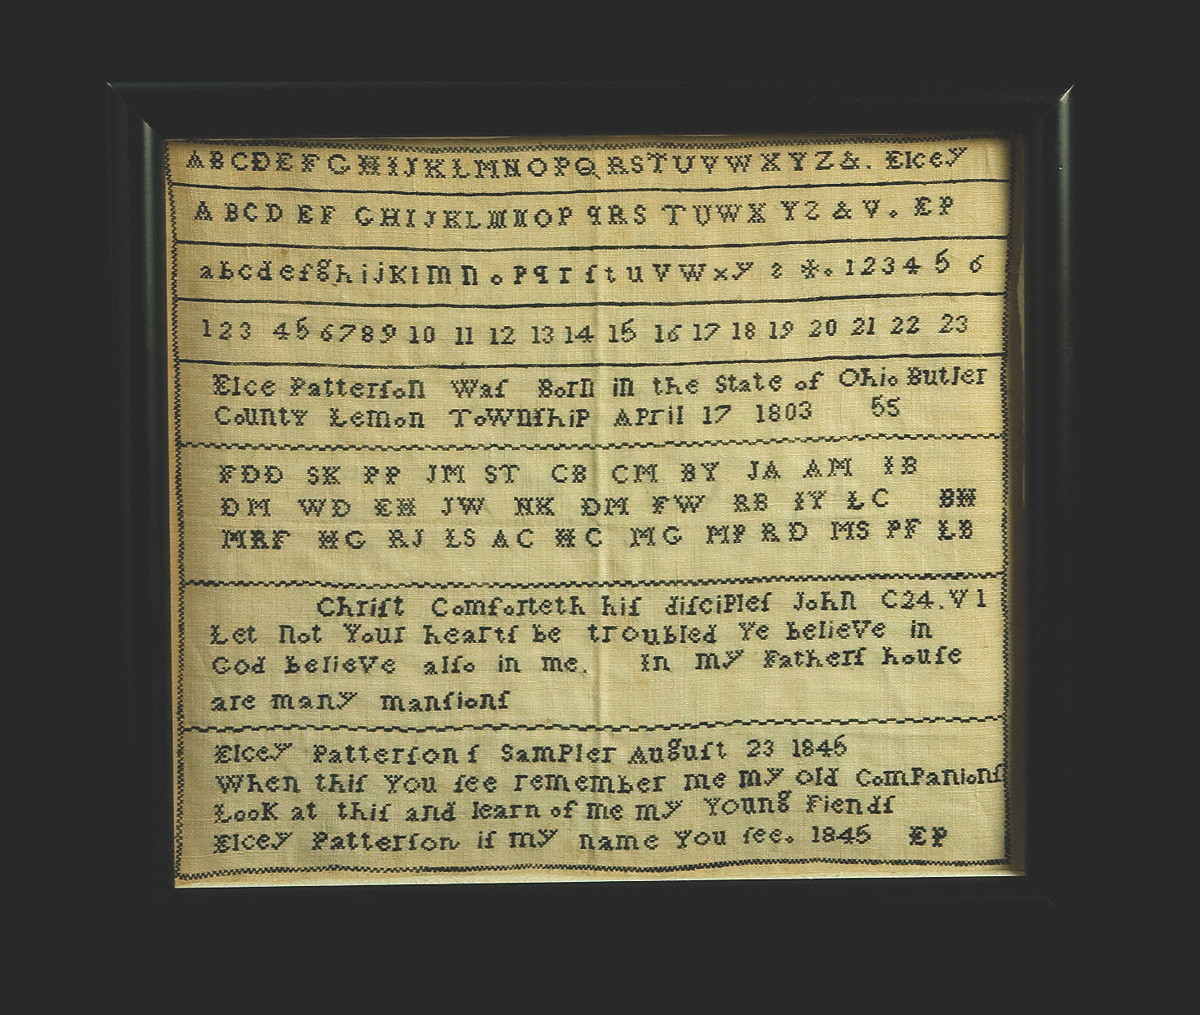 ABCDEFGHIJKLMNOPQRSTUVWXYZ&. Elcey
ABCD EF GHIJKLMNOP qRS TUWX YZ & V. EP
abcdefghijKlmn oPqrſtuVWxyz *. 123456
123 456789 10 11 12 13 14 15 16 17 18 19 20 21 22 23
Elce Patterſon Waſ Born in the State of Ohio Butler
County Lemon TowNſhiP APril 17 1803 55
FDD SK PP JM ST CB CM BY JA AM IB
DM WD EH JW NK DM FW RB IY LC BH
MRF HG RJ LS AC HC MG MP RD MS PF LB
Chriſt Comforteth hiſ diſciPleſ John C24.V1
Let not Your heartſ be troubled Ye believe in
God believe alſo in me. In my Fatherſ houſe
are many manſionſ
Elcey Patterſonſ SamPler Auguſt 23 1846
When thiſ You ſee remember me my old ComPanionſ
Look at thiſ and learn of me my Young Fiendſ
Elcey Patterſon iſ my name You ſee. 1846 EP